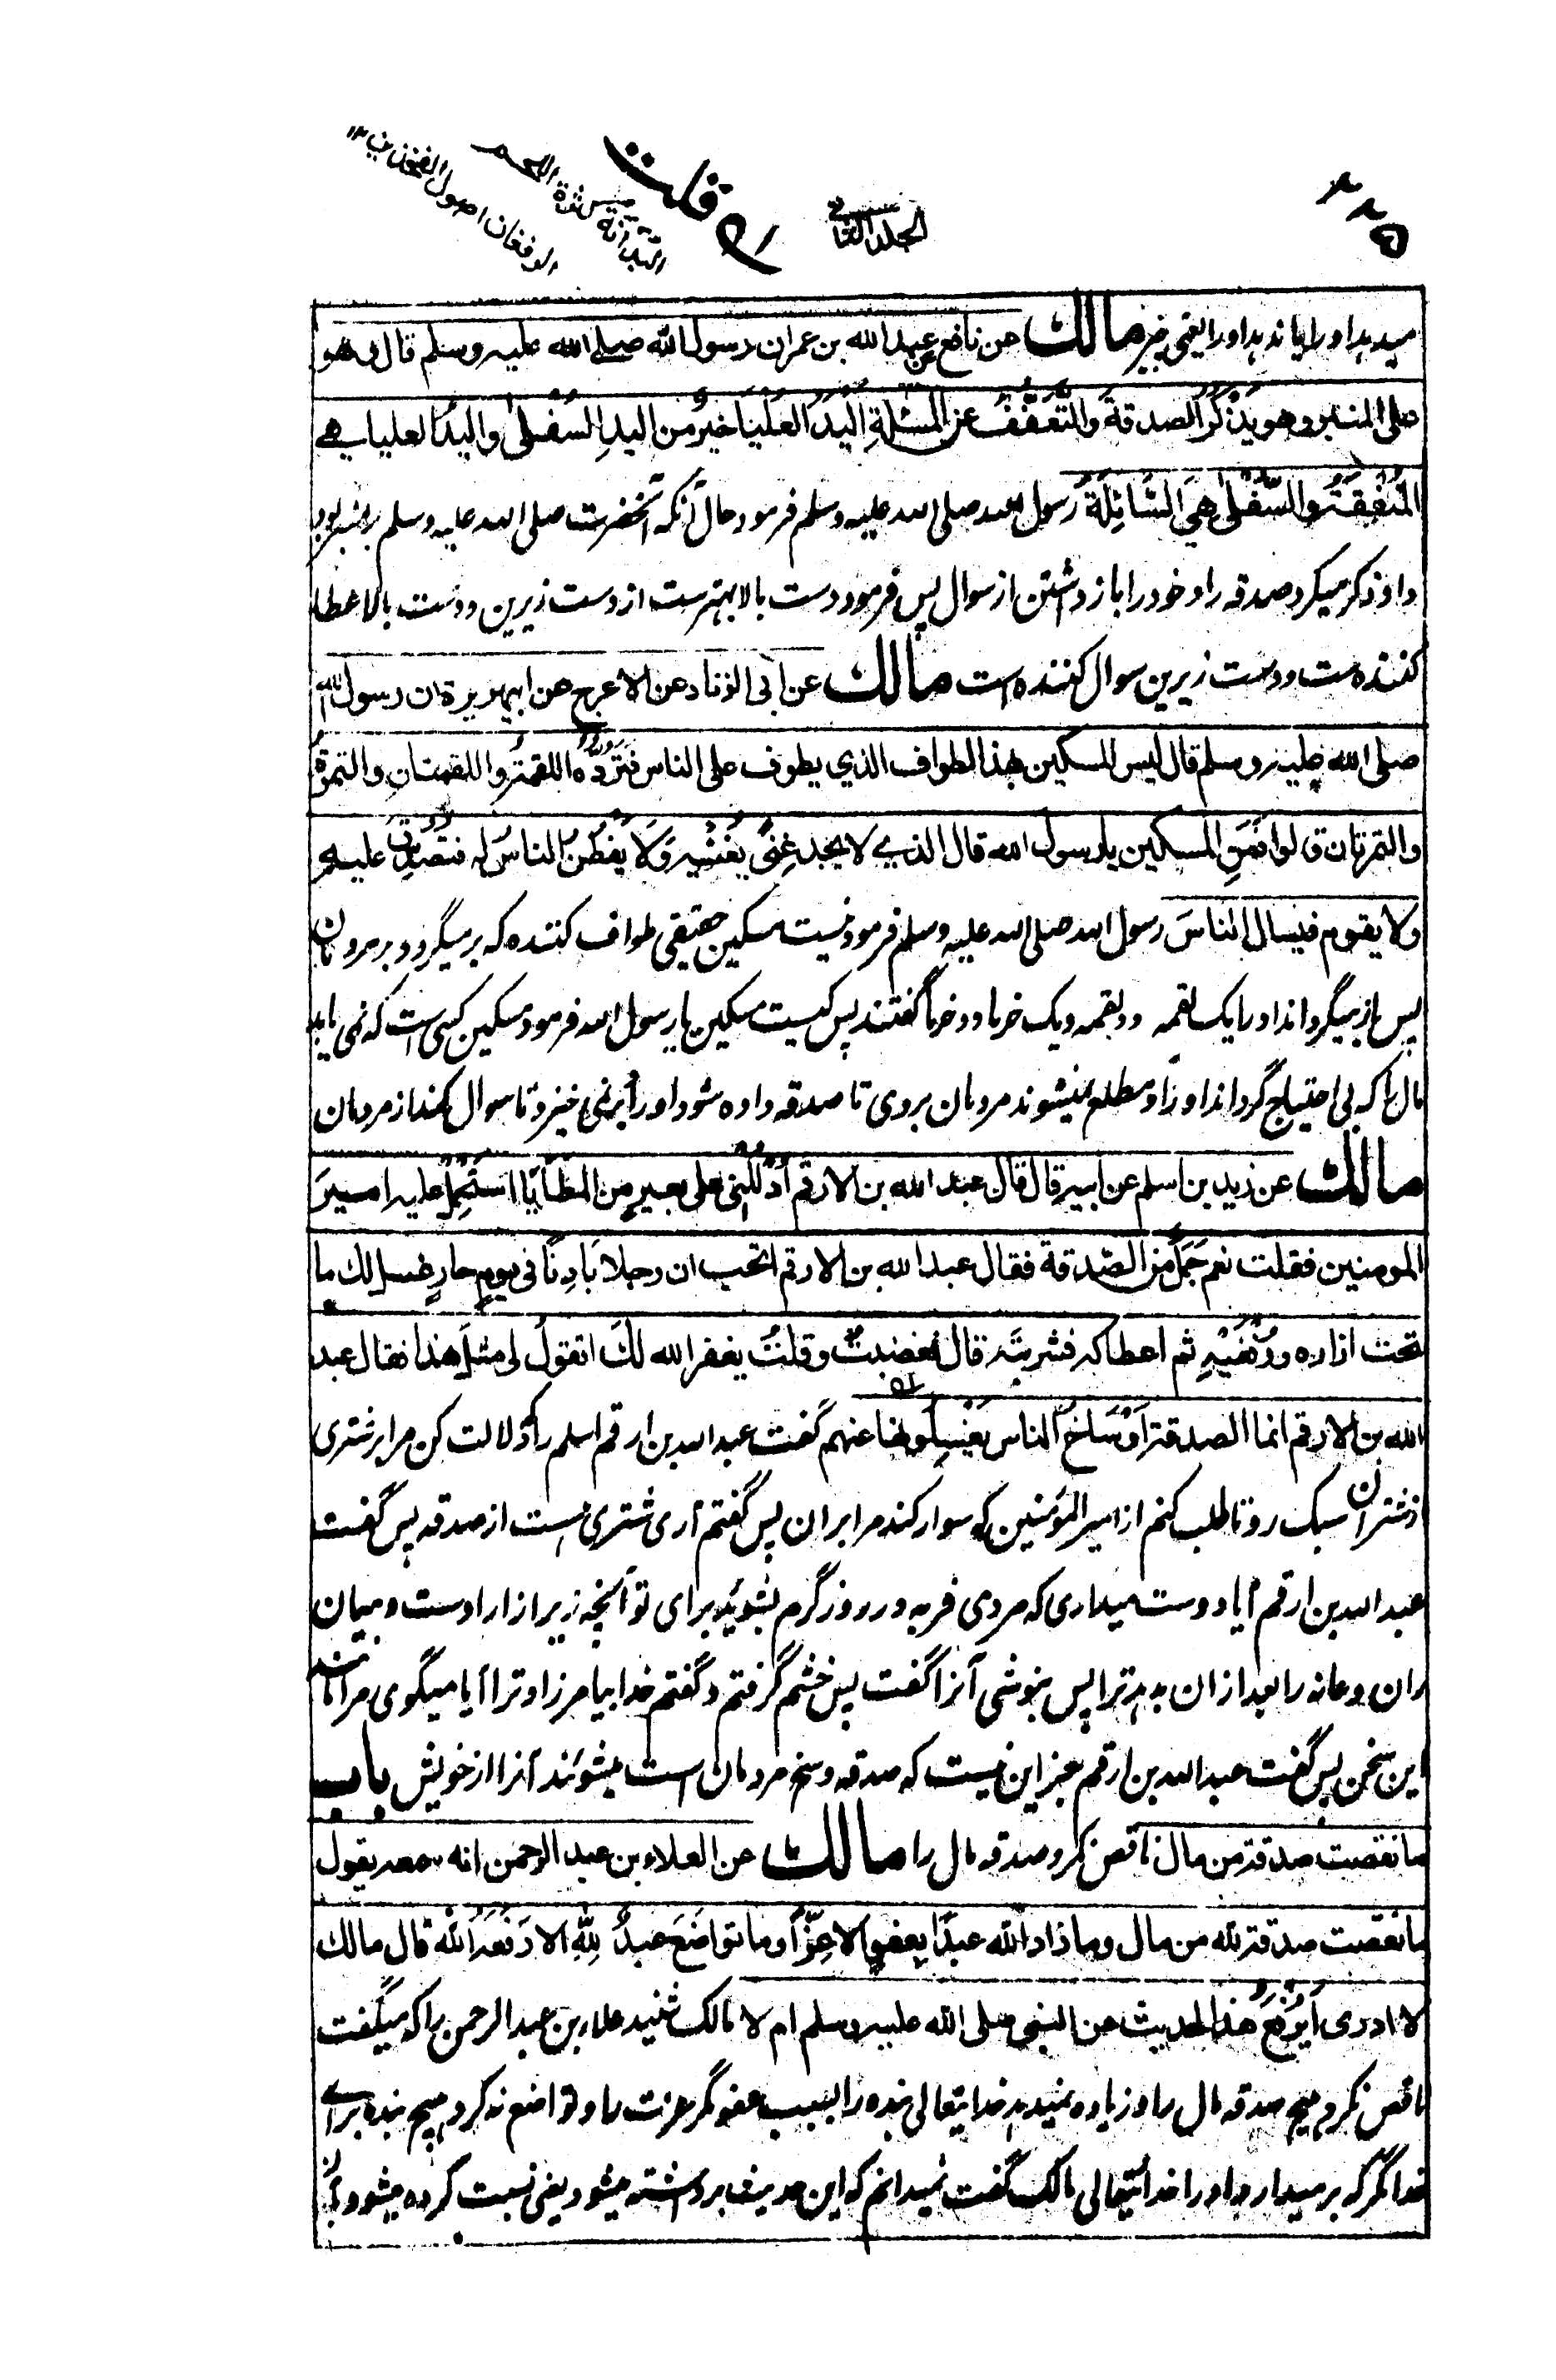 ۲۲۵
الجلد الثانی
قلت
میدہد او را یا ندہد او را یعنی چیز مالك عن نافع عن عبد الله بن عمر ان رسول الله صلى الله عليه وسلم قال وهو
على المنبر وهو يَذْكُرُ الصدقةَ وَالتَّعَفُّفَ عن المسْئلةِ اَلْيَدُ العُلْيَا خيرٌ من اليدِ السُفْلىٰ واليدُ العليا هي
المُنْفِقَةُ والسُّفْلىٰ هِيَ السَّائِلَةُ رسول الله صلی الله علیه وسلم فرمود حال آنکه آنحضرت صلی الله علیه وسلم بر منبر بود
و او ذکر میکرد صدقه را و خود را باز داشتن از سوال پس فرمود دست بالا بهترست از دست زیرین و دست بالا عطا
کننده ست و دست زیرین سوال کننده است مالك عن ابى الزناد عن الاعرج عن ابيهريرة ان رسول الله
صلى الله عليه وسلم قال ليس المسكين بهذا الطواف الذي يطوف على الناس فتَرُدُّه اللقمةُ واللقمتانِ والتمرةُ
والتمرتان قالوا فَمَنِ المسكين يا رسول الله قال الذي لا يجد غِنىً يُغْنِيه وَلَا يَفْطُنُ الناسُ له فَيُتصدقَ عليه
ولا يقوم فيسال الناسَ رسول الله صلی الله علیه وسلم فرمود نیست مسکین حقیقی طواف کننده که برمیگردد بر مردمان
پس باز میگرداند او را یک لقمه و دو لقمه و یک خرما و دو خرما گفتند پس کیست مسکین یا رسول الله فرمود مسکین کسی است که نمی یابد
مال را که بی احتیاج گرداند او را و مطلع نمیشوند مردمان بروی تا صدقه داده شود او را و بر نمی خیزد تا سوال کند از مردمان
مالك عن زيد بن اسلم عن ابيه قال قال عبد الله بن الارقم اُدْلُلْنِى على بعيرٍ من المَطَايَا استَحْمِلُ عليه امير
المومنين فقلت نعم جَمَلٌ من الصّدقة فقال عبد الله بن الارقم اتحب ان رجلا بَادِنًا فى يومٍ حارٍ غسل لك ما
تحت ازاره ورُفْغَيْهِ ثم اعطاكه فشربتَه قال فغضبتُ وقلتُ يغفر الله لكَ اتقولُ لى مثلَ هذا فقال عبد
الله بن الارقم انما الصدقة اَوْسَاخُ الناس يَغْسِلُونها عنهم گفت عبد الله بن ارقم اسلم را که دلالت کن مرا بر شتری
از شتران سبک رو تا طلب کنم از امیر المؤمنین که سوار کند مرا بران پس گفتم آری شتری هست از صدقه پس گفت
عبد الله بن ارقم آیا دوست میداری که مردی فربه در روز گرم بشوید برای تو آنچه زیر ازار اوست و میان
ران و عانه را بعد ازان بدهد ترا پس بنوشی آنرا گفت پس خشم گرفتم و گفتم خدا بیامرزاد ترا آیا میگوی مرا مانند
این سخن پس گفت عبد الله بن ارقم جز این نیست که صدقه وسخ مردمان است میشویند آنرا از خویش باب
ما نقصت صدقة من مال ناقص نکرد صدقه مال را مالك عن العلاء بن عبد الرحمن انه سمعه يقول
ما نقصت صدقة لله من مال وما زاد الله عبدًا بعفوٍ الا عِزًّا وما تواضَعَ عبدٌ لِلّٰهِ الا رَفَعَهُ اللهُ قال مالك
لا ادرى اَيُرْفَعُ هذا الحديث عن النبى صلى الله عليه وسلم ام لا مالک شنید علاء بن عبد الرحمن را که میگفت
ناقص نکرد هیچ صدقه مال را و زیاده نمیدهد خدایتعالی بنده را بسبب عفو مگر عزت را و تواضع نه کرد هیچ بنده برای
خدا مگر که بر میدارد او را خدایتعالی مالک گفت نمیدانم که این حدیث برداشته میشود یعنی نسبت کرده میشود بآن